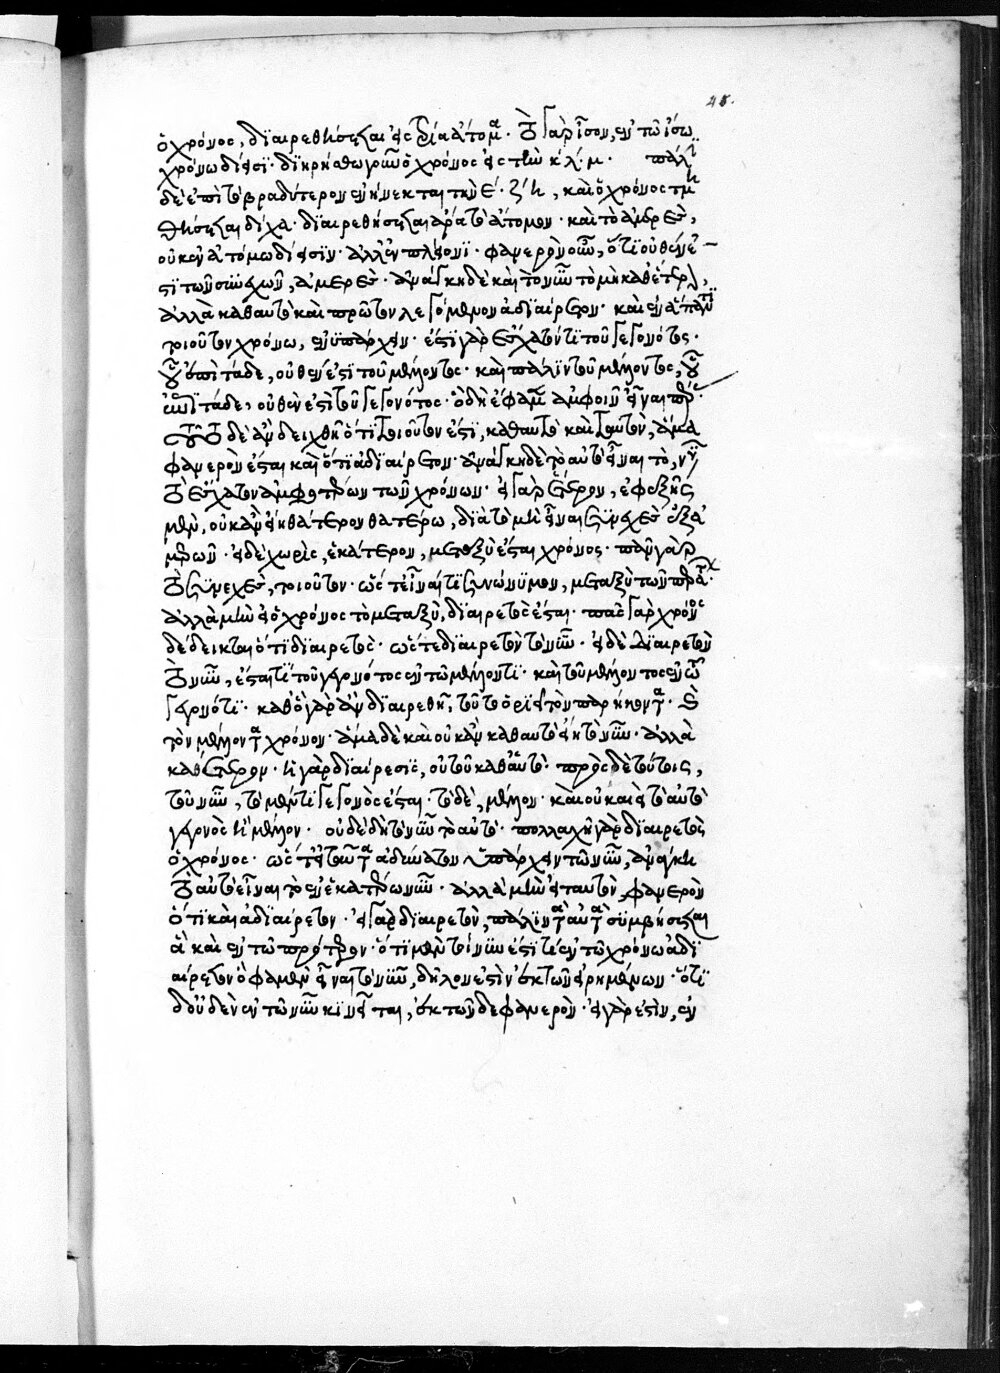 48.
ὁ χρόνος, διαιρεθήσεται εἰς τρία ἄτομα. τὸ γὰρ ἴσον, ἐν τῶ ἴσω
χρόνω δίεισι. διηρήσθω γοῦν ὁ χρόνος εἰς τὴν κ. λ. μ. πάλι
δὲ ἐπεὶ τὸ βραδύτερον ἐνήνεκται τὴν ε. ζ. η, καὶ ὁ χρόνος τμη
θήσεται δίχα. διαιρεθήσεται ἄρα τὸ ἄτομον. καὶ τὸ ἀμερὲς,
οὐκ ἐν ἀτόμω δίεισιν. ἀλλ' ἐν πλείονι. φανερὸν οὖν, ὅτι οὐθέν ἐ
στι τῶν συνεχῶν, ἀμερές. ἀνάγκη δὲ καὶ τὸ νῦν τὸ μὴ καθ' ἕτερον,
ἀλλὰ καθαυτὸ καὶ πρῶτον λεγόμενον ἀδιαίρετον. καὶ ἐν ἅπαντι
τοιοῦτον χρόνω, ἐνυπάρχειν. ἔστι γὰρ ἔσχατόν τι τοῦ γεγονότος.
οὗ ἐπὶ τάδε, οὐθέν ἐστι τοῦ μέλλοντος. καὶ πάλιν τοῦ μέλλοντος, οὗ
ἐπὶ τάδε, οὐθέν ἐστι τοῦ γεγονότος. ὃ δὴ ἔφαμεν ἀμφοῖν εἶναι πέρας.
τοῦτο δὲ ἂν δειχθῆ ὅτι τοιοῦτον ἐστὶ, καθαυτὸ καὶ ταυτὸν, ἅμα
φανερὸν ἔσται καὶ ὅτι ἀδιαίρετον. ἀνάγκη δὲ τὸ αὐτὸ εἶναι τὸ, νῦν
τὸ ἔσχατον ἀμφοτέρων τῶν χρόνων. εἰ γὰρ ἕτερον, ἐφεξῆς
μὲν, οὐκ ἂν εἴη θάτερον θατέρω, διὰ τὸ μὴ εἶναι συνεχὲς ἐξ ἀ
μερῶν. εἰ δὲ χωρὶς, ἑκάτερον, μεταξὺ ἔσται χρόνος. πᾶν γὰρ
τὸ συνεχὲς, τοιοῦτον. ὥστ' εἶναί τι συνώνυμον, μεταξὺ τῶν περάτων.
ἀλλὰ μὴν εἰ ὁ χρόνος τὸ μεταξὺ, διαιρετὸς ἔσται. πᾶς γὰρ χρόνος
δέδεικται ὅτι διαιρετός. ὥστε διαιρετὸν τὸ νῦν. εἰ δὲ διαιρετὸν
τὸ νῦν, ἔσται τι τοῦ γεγονότος ἐν τῶ μέλλοντι. καὶ τοῦ μέλλοντος ἐν τῶ
γεγονότι. καθ' ὃ γὰρ ἂν διαιρεθῆ, τοῦτο ὁριεῖ τὸν παρήκοντα. καὶ
τὸν μέλλοντα χρόνον. ἅμα δὲ καὶ οὐκ ἂν καθαυτὸ εἴη τὸ νῦν. ἀλλὰ
καθ' ἕτερον. ἡ γὰρ διαίρεσις, οὐ τοῦ καθ' αὑτό. πρὸς δὲ τούτοις,
τοῦ νῦν, τὸ μέν τι γεγονὸς ἔσται. τὸ δὲ, μέλλον. καὶ οὐκ ἀεὶ τὸ αὐτὸ
γεγονὸς ἢ μέλλον. οὐδὲ δὴ τὸ νῦν τὸ αὐτό. πολλαχῆ γὰρ διαιρετὸς
ὁ χρόνος. ὥστ' εἰ ταῦτα ἀδύνατον ὑπάρχειν τῶ νῦν, ἀνάγκη
τὸ αὐτὸ εἶναι τὸ ἐν ἑκατέρω νῦν. ἀλλὰ μὴν εἰ ταυτὸν, φανερὸν
ὅτι καὶ ἀδιαίρετον. εἰ γὰρ διαιρετὸν, πάλιν τὰ αὐτὰ συμβήσεται
ἃ καὶ ἐν τῶ πρότερον. ὅτι μὲν τοίνυν ἐστί τι ἐν τῶ χρόνω ἀδι
αίρετον ὅ φαμεν εἶναι τὸ νῦν, δῆλον ἐστὶν ἐκ τῶν εἰρημένων. ὅτι
δ' οὐδὲν ἐν τῶ νῦν κινεῖται, ἐκ τῶνδε φανερόν. εἰ γάρ ἐστιν, ἐν